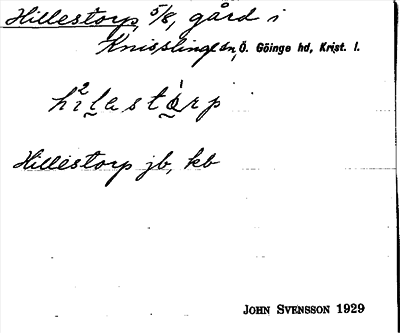 Hillestorp, 5/8, gård i
Knisslinge sn, Ö. Göinge hd, Krist. l.
hìlastårp
Hillestorp jb, kb
JOHN SVENSSON 1929